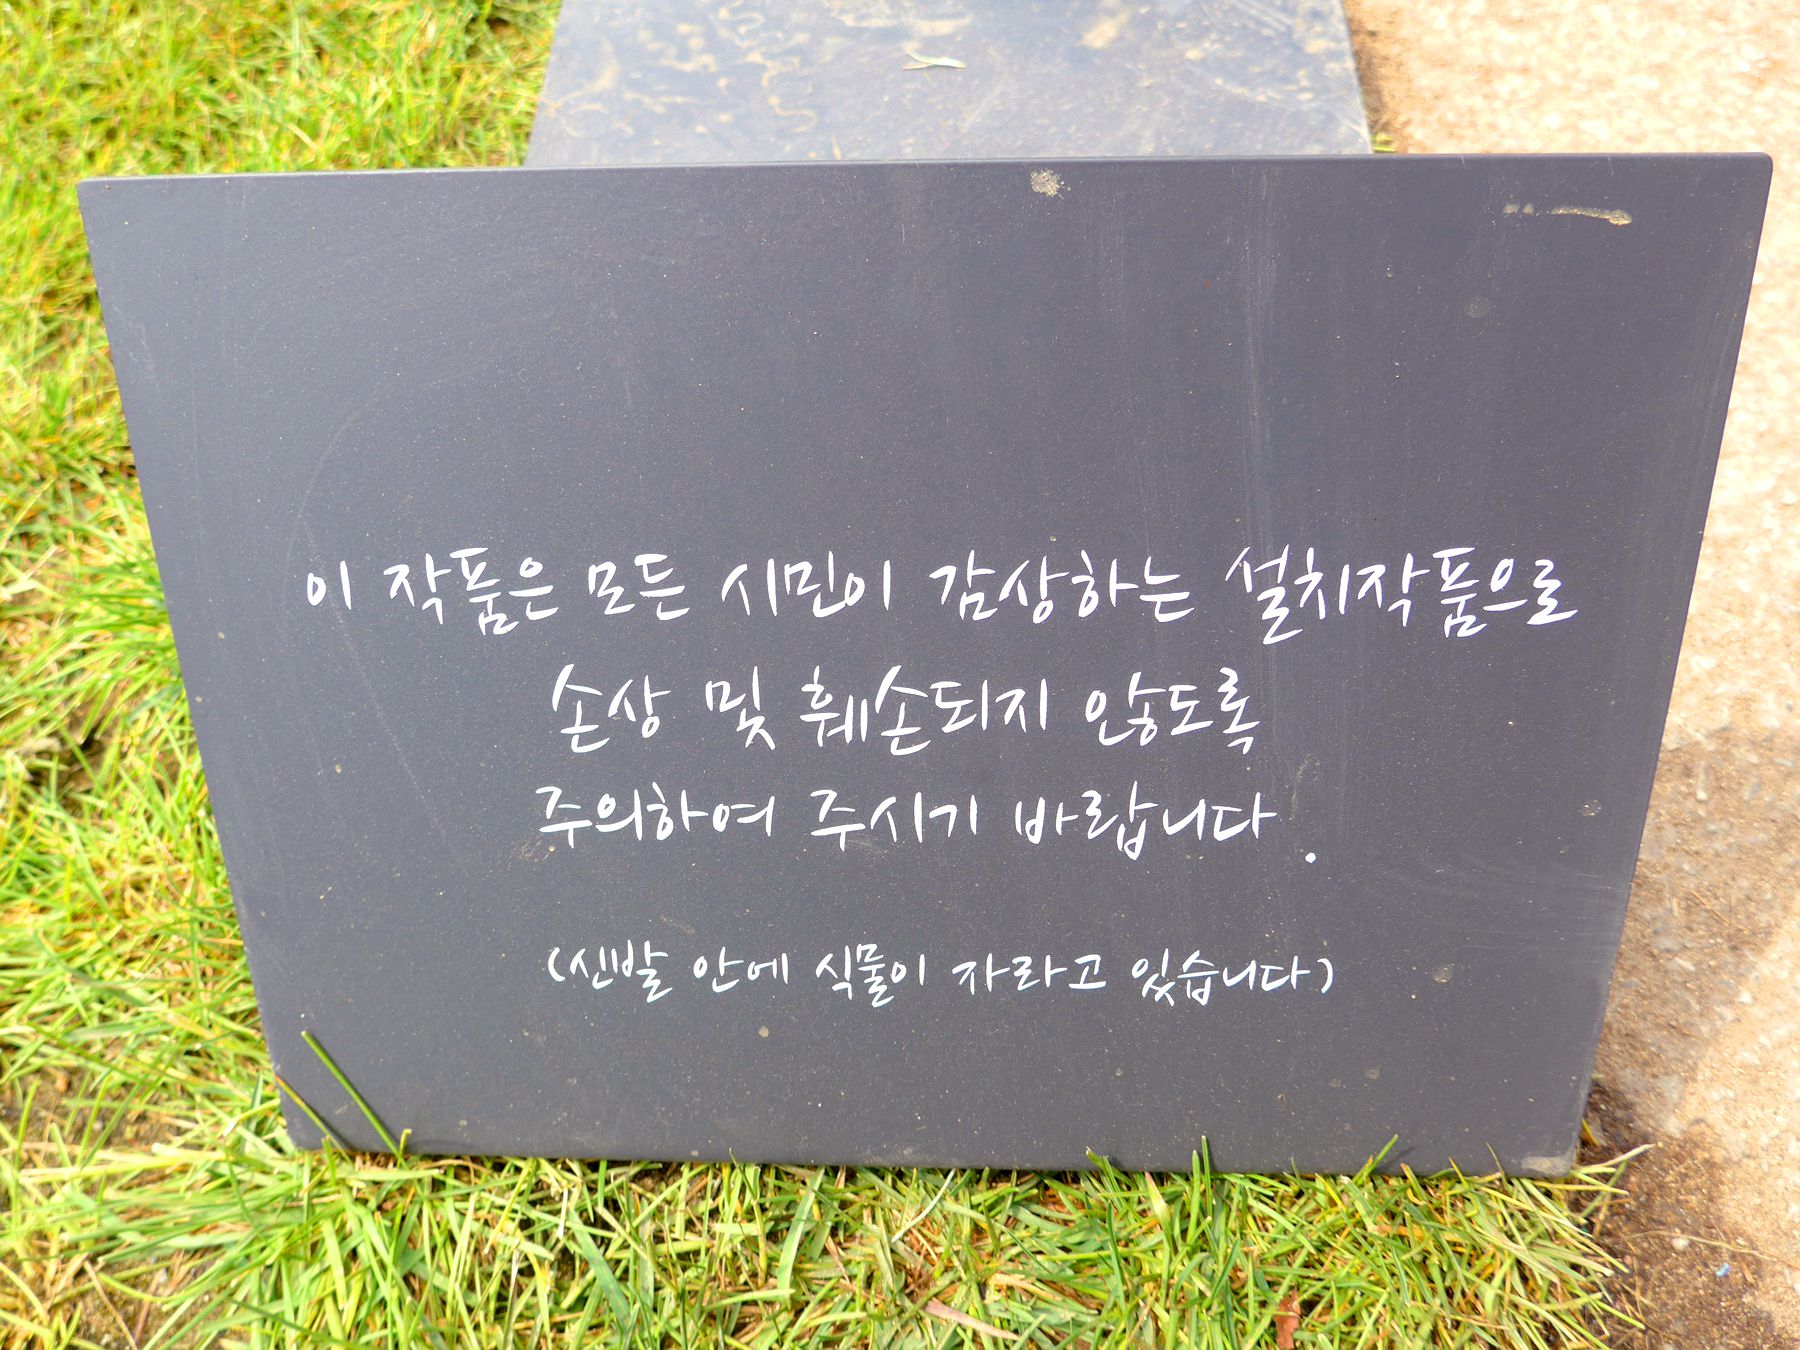 이 작품은 모든 시민이 감상하는 설치작품으로
손상 및 훼손되지 않도록
주의하여 주시기 바랍니다.
(신발 안에 식물이 자라고 있습니다)